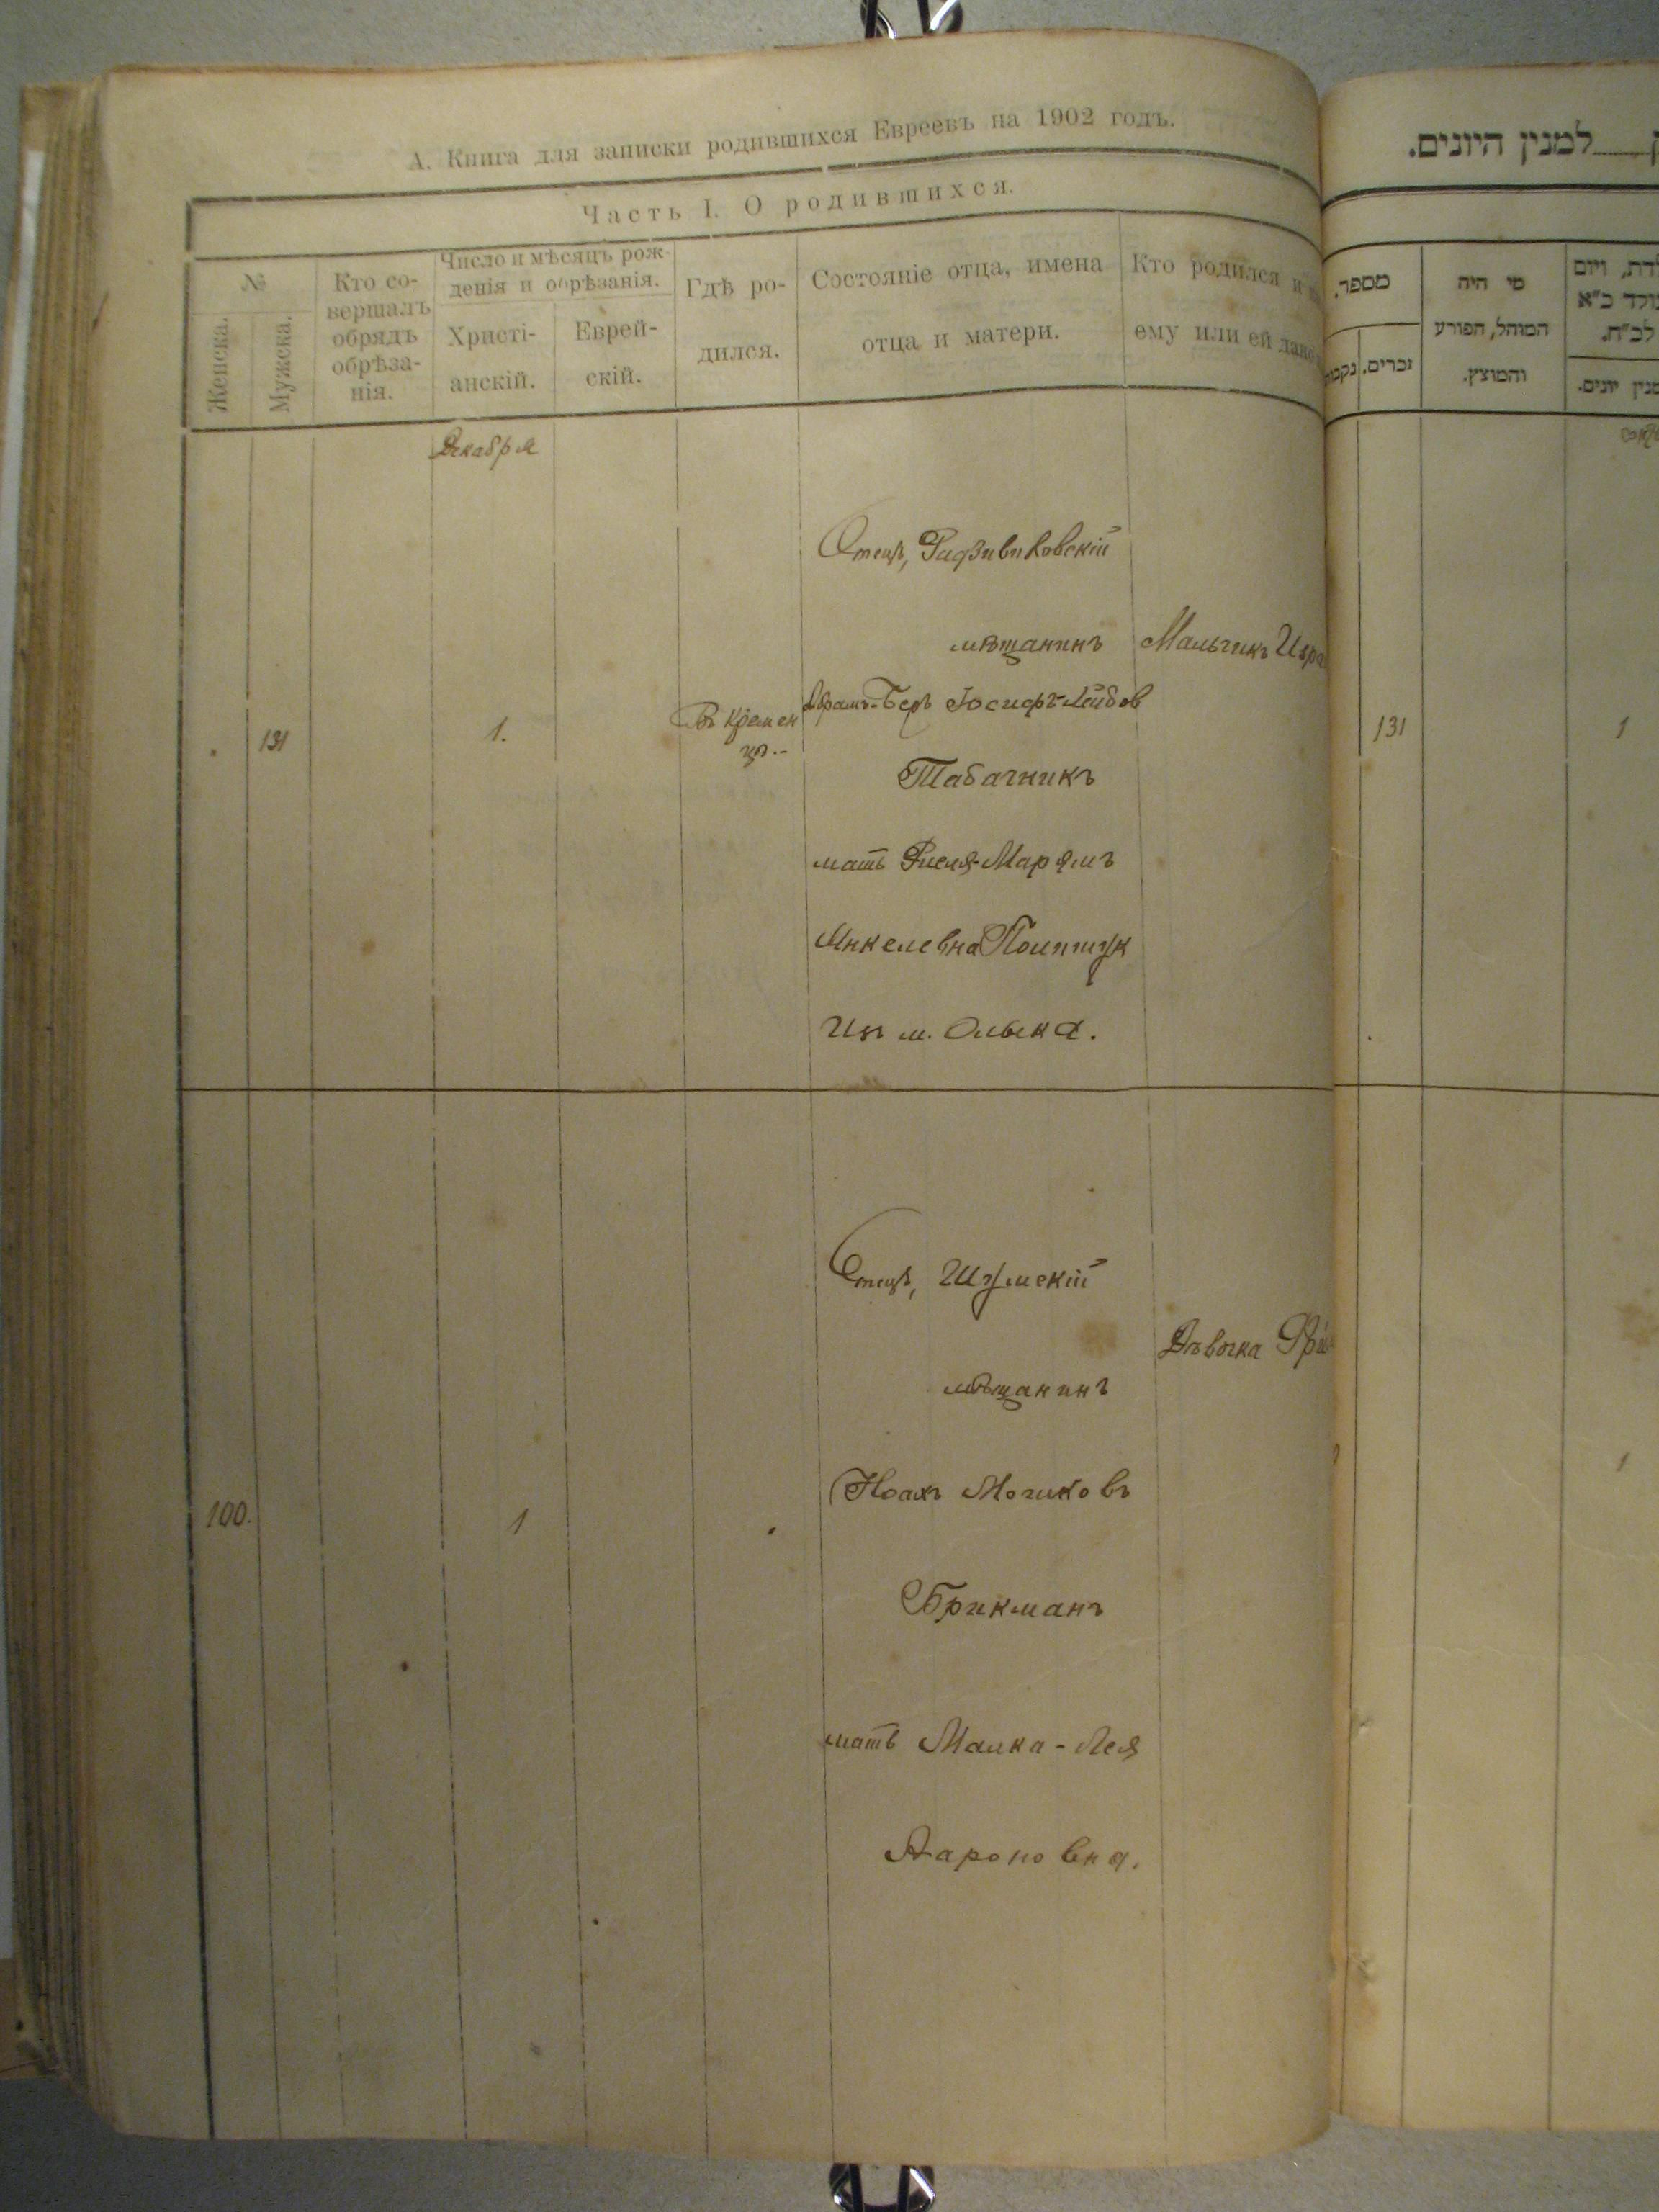 А. Книга для записки родившихся Евреевъ на 1902 годъ.
Часть I. О родившихся.
№
Женска.
Мужска.
Кто со-
вершалъ
обрядъ
обрѣза-
нія.
Число и мѣсяцъ рож-
денія и обрѣзанія.
Христі-
анскій.
Еврей-
скій.
Гдѣ ро-
дился.
Состояніе отца, имена
отца и матери.
Кто родился и
ему или ей дано
Декабря
131
1.
Въ Кремен
цѣ.-
Отецъ, Радзивиловскій
мѣщанинъ
Абрамъ-Беръ Іосифъ-Лейбов
Табачникъ
мать Рися-Марямъ
Янкелевна
Изъ м. Олыка.
Мальчикъ Изра
100.
1
Отецъ, Шумскій
мѣщанинъ
Ноахъ Мошковъ
Брикманъ
мать Малка-Лея
Аароновна.
Дѣвочка
למנין היונים.
מספר.
זכרים.
מי היה
המוהל, הפורע
והמוצץ.
131
1
1